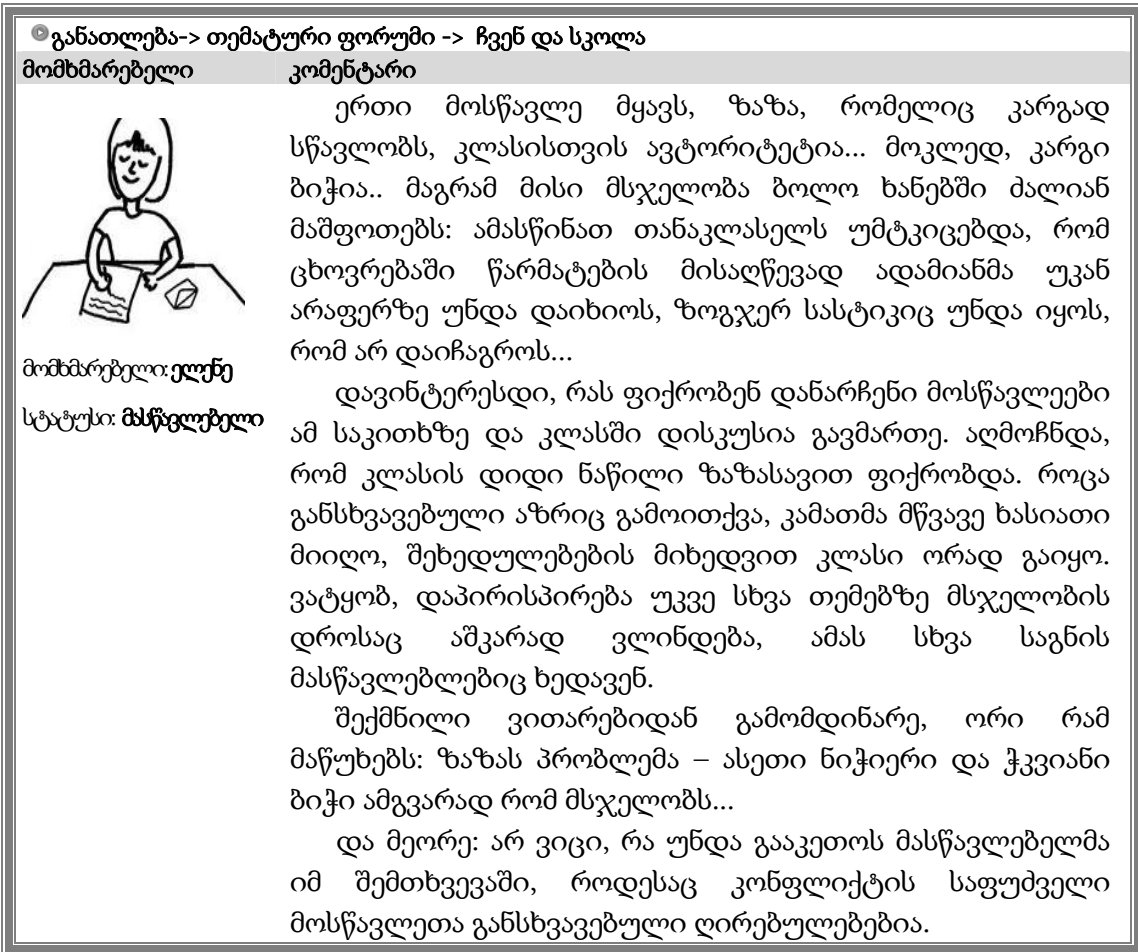 განათლება-> თემატური ფორუმი -> ჩვენ და სკოლა
მომხმარებელი კომენტარი
ერთი მოსწავლე მყავს, ზაზა, რომელიც კარგად
სწავლობს, კლასისთვის ავტორიტეტია... მოკლედ, კარგი
ბიჭია.. მაგრამ მისი მსჯელობა ბოლო ხანებში ძალიან
მაშფოთებს: ამასწინათ თანაკლასელს უმტკიცებდა, რომ
ცხოვრებაში წარმატების მისაღწევად ადამიანმა უკან
არაფერზე უნდა დაიხიოს, ზოგჯერ სასტიკიც უნდა იყოს,
რომ არ დაიჩაგროს...
მომხმარებელი: ელენე
სტატუსი: მასწავლებელი
დავინტერესდი, რას ფიქრობენ დანარჩენი მოსწავლეები
ამ საკითხზე და კლასში დისკუსია გავმართე. აღმოჩნდა,
რომ კლასის დიდი ნაწილი ზაზასავით ფიქრობდა. როცა
განსხვავებული აზრიც გამოითქვა, კამათმა მწვავე ხასიათი
მიიღო, შეხედულებების მიხედვით კლასი ორად გაიყო.
ვატყობ, დაპირისპირება უკვე სხვა თემებზე მსჯელობის
დროსაც აშკარად ვლინდება, ამას სხვა საგნის
მასწავლებლებიც ხედავენ.
შექმნილი ვითარებიდან გამომდინარე, ორი რამ
მაწუხებს: ზაზას პრობლემა – ასეთი ნიჭიერი და ჭკვიანი
ბიჭი ამგვარად რომ მსჯელობს...
და მეორე: არ ვიცი, რა უნდა გააკეთოს მასწავლებელმა
იმ შემთხვევაში, როდესაც კონფლიქტის საფუძველი
მოსწავლეთა განსხვავებული ღირებულებებია.